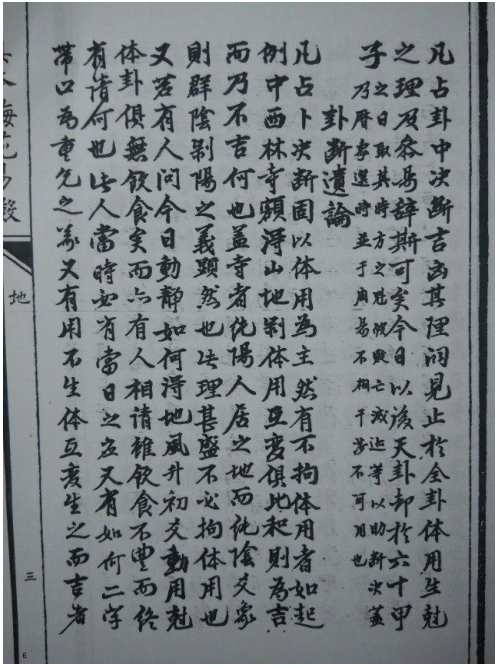 凡占卦中决断吉凶其理洞見止於全卦体用生尅
之理及爻易辞斯可矣今日以後天卦却於六十甲
子之日取其時方之魁破敗亡滅迹等以助断决盖
乃曆家選時並于周易不相干学不可用也
卦断遺論
凡占卜决断固以体用為主然有不拘体用者如起
例中西林寺額淂山地剝体用互变俱比和則為吉
而乃不吉何也盖寺者純陽人居之地而純陰爻象
則群陰剝陽之義顕然也此理甚盛不必拘体用也
又若有人問今日動静如何淂地風升初爻動用尅
体卦俱無飲食矣而亦有人相請雖飲食不豊而終
有请何也此人當時必有當日之应又有如何二字
帶口為重兌之義又有用不生体互变生之而吉者
地
三
6